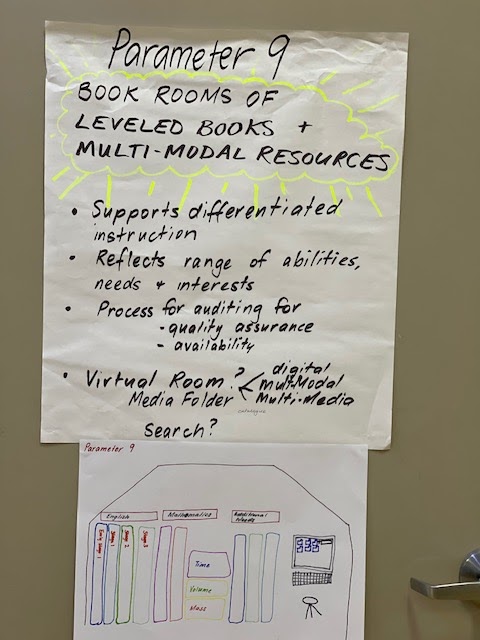 Parameter 9
BOOK ROOMS OF
LEVELED BOOKS +
MULTI-MODAL RESOURCES
• Supports differentiated
instruction
• Reflects range of abilities,
needs + interests
• Process for auditing for
- quality assurance
- availability
• Virtual Room?
Media Folder
digital
Multi-Modal
Multi-Media
Search?
Parameter 9
English
Mathematics
Additional
Needs
Early Stage 1
Stage 1
Stage 2
Stage 3
Time
Volume
Mass